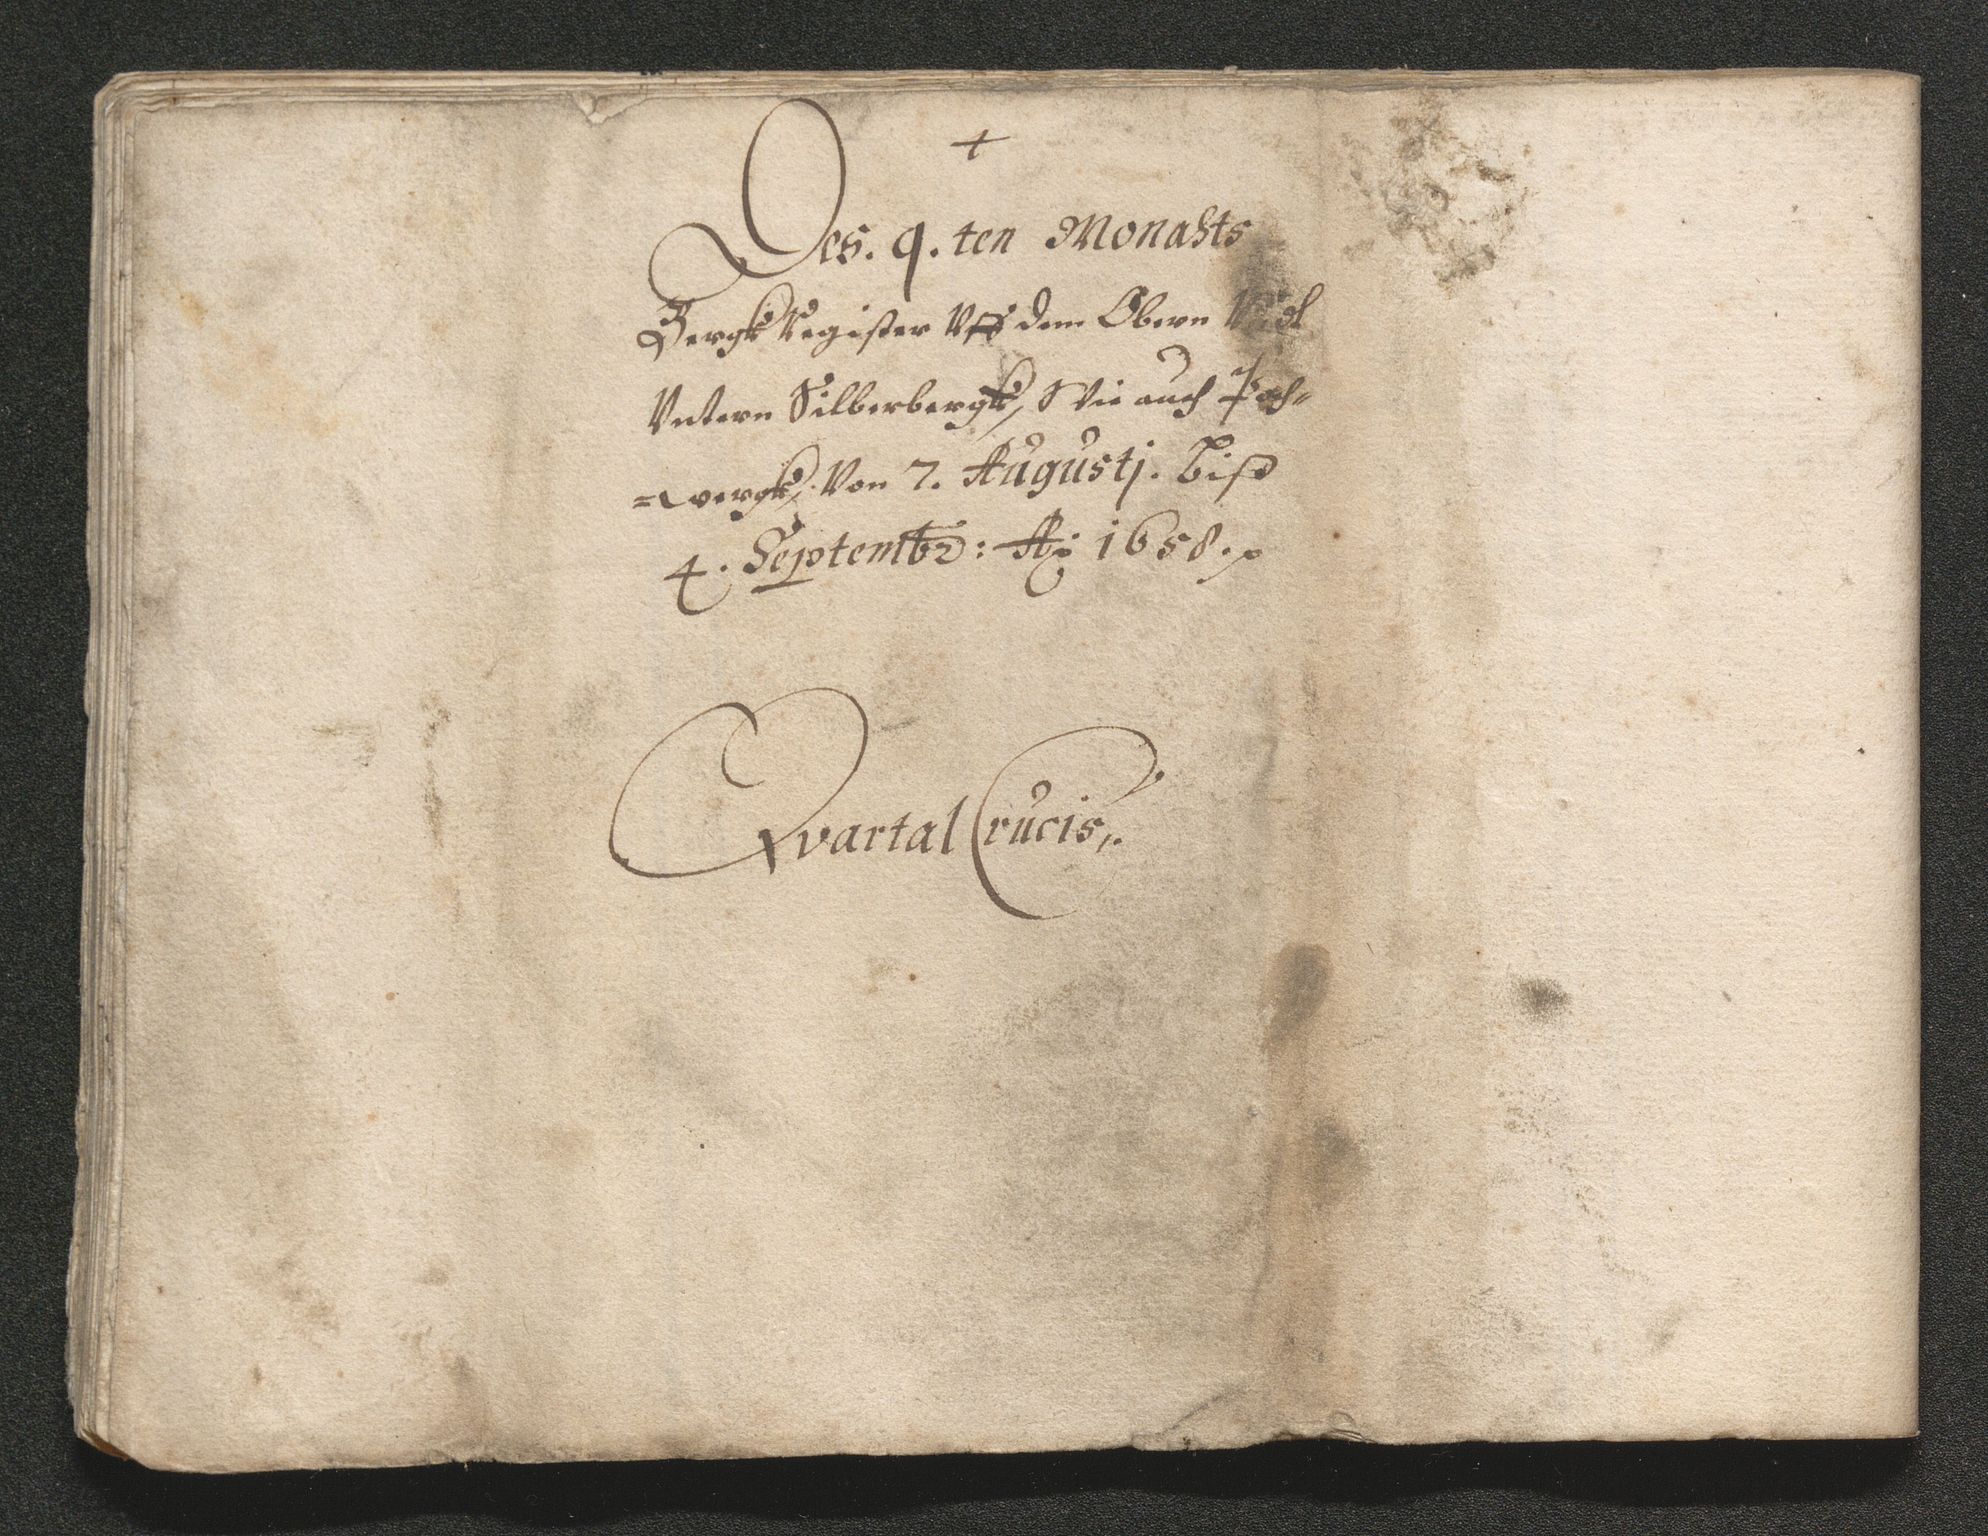 +
Des. 9. ten Monahts
Bergk Register Vff dem Obern Vndt
Vntern Silberbergk, Wie auch Poch-
=wergk, Von 7. Augustj. Biß
4. Septembr: Ao 1658.
Qvartal Crucis,.